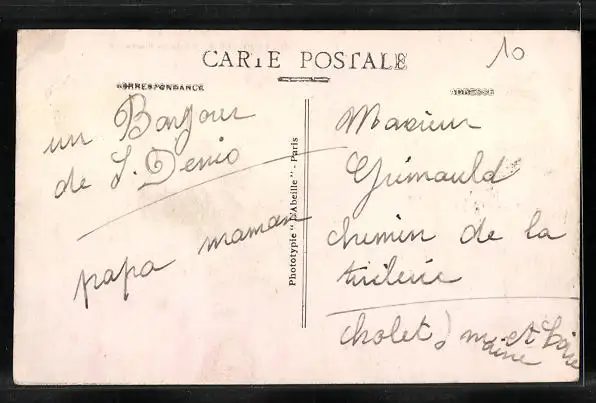 CARTE POSTALE
10
CORRESPONDANCE
ADRESSE
un Bonjour
de S. Denis
papa maman
Phototypie "L'Abeille" - Paris
Monsieur
Grimauld
chemin de la
tuilerie
cholet) maine et Loire